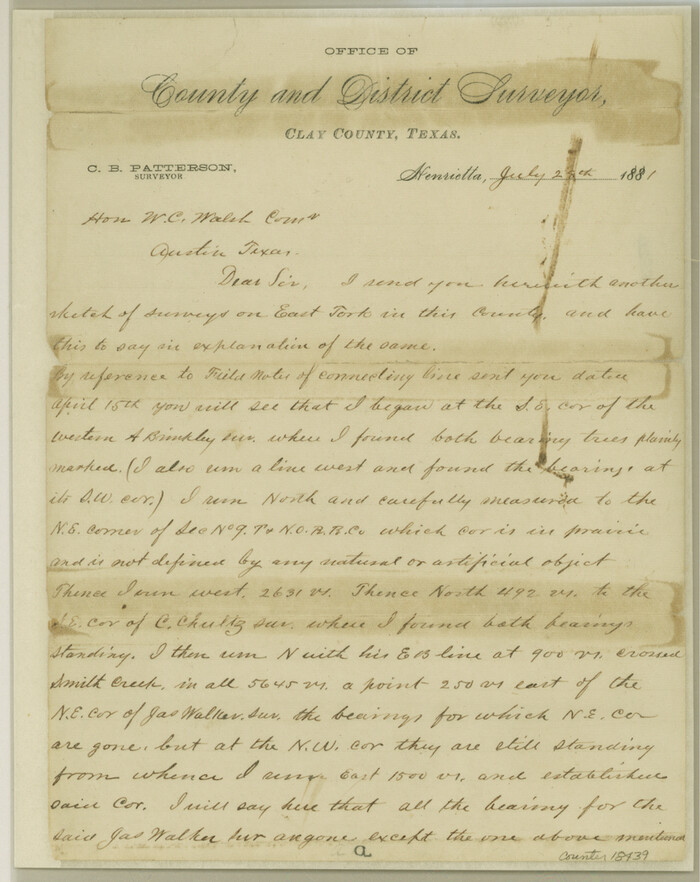 OFFICE OF
County and District Surveyor,
CLAY COUNTY, TEXAS.
C. B. PATTERSON,
SURVEYOR
Henrietta, July 2 th 1881
Hon W.C. Walsh Comr
Austin Texas.
Dear Sir, I send you herewith another
sketch of surveys on East Fork in this County, and have
this to say in explanation of the same.
By reference to Field Notes of connecting line sent you dated
April 15th you will see that I began at the S.E. cor of the
western A Brinkley sur. where I found both bearing trees plainly
marked. (I also run a line west and found the bearings at
its S.W. cor.) I run North and carefully measured to the
N.E. corner of Sec No 9. T & N.O.R.R.Co which cor is in prairie
and is not defined by any natural or artificial object
Thence I run west. 2631 vs. Thence North 492 vs. to the
S.E. cor of C. Chultz sur. where I found both bearings
standing. I then run N with his E B line at 900 vs. crossed
Smith Creek, in all 5645 vs. a point 250 vs east of the
N.E. cor of Jas Walker. sur. the bearings for which N.E. cor
are gone. but at the N.W. cor they are still standing
from whence I run East 1500 vs. and established
said Cor. I will say here that all the bearing for the
said Jas Walker sur are gone except the one above mentioned
a
counter 18439